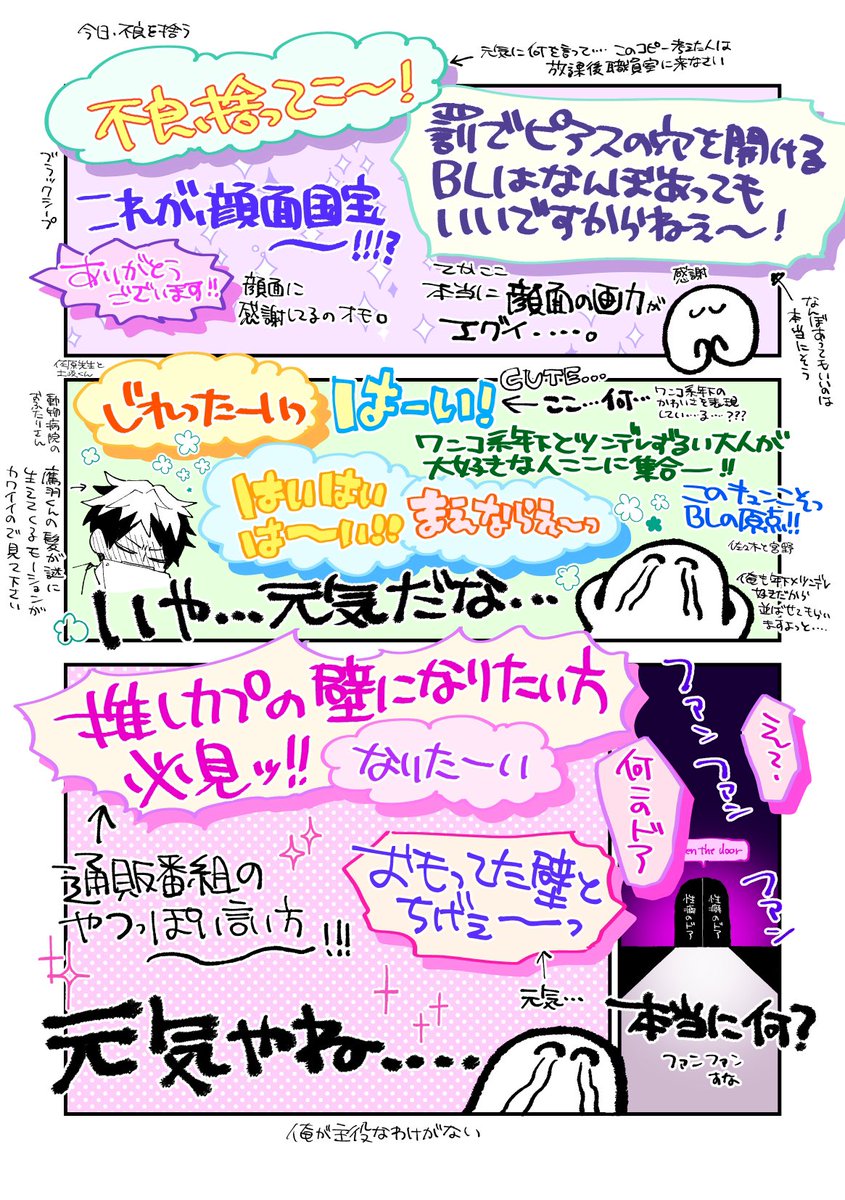 今日、不良を拾う
不良、捨ってこ〜!
元気に何を言って‥‥このコピー考えた人は
放課後職員室に来なさい
罰でピアスの穴を開ける
BLはなんぼあっても
いいですからねぇ〜!
ブラックシープ
これが、顔面国宝
〜!!!?
ありがとう
ございます!!
顔面に
感謝してるのオモ。
てかここ
本当に顔面の画力が
エグイ‥‥‥。
感謝
なんぼあってもいいのは
本当にそう
佐原先生と
土岐くん
動物病院の
おふたりさん
じれったーいっ
はーい!
CUTE...
ここ…何…
ワンコ系年下の
かわいこを表現
してい…る…???
ワンコ系年下とツンデレずるい大人が
大好きな人ここに集合ー!!
鷹羽くんの髪が謎に
生えてくるモーションが
カワイイので見て下さい
はいはい
は〜い!!
まえならえ〜っ
このキュンこそっ
BLの原点!!
佐々木と宮野
いや…元気だな…
俺も年下×ツンデレ
好きだから
並ばせてもらい
ますよっと‥‥
推しカプの壁になりたい方
必見ッ!!
なりたーい
通販番組の
やつっぽい言い方
!!!
おもってた壁と
ちげぇ〜っ
元気…
元気やね‥‥
ファン
ファン
ファン
えっ‥
何このドア
en the door
性癖のドア
性癖のドア
本当に何?
ファンファン
すな
俺が主役なわけがない